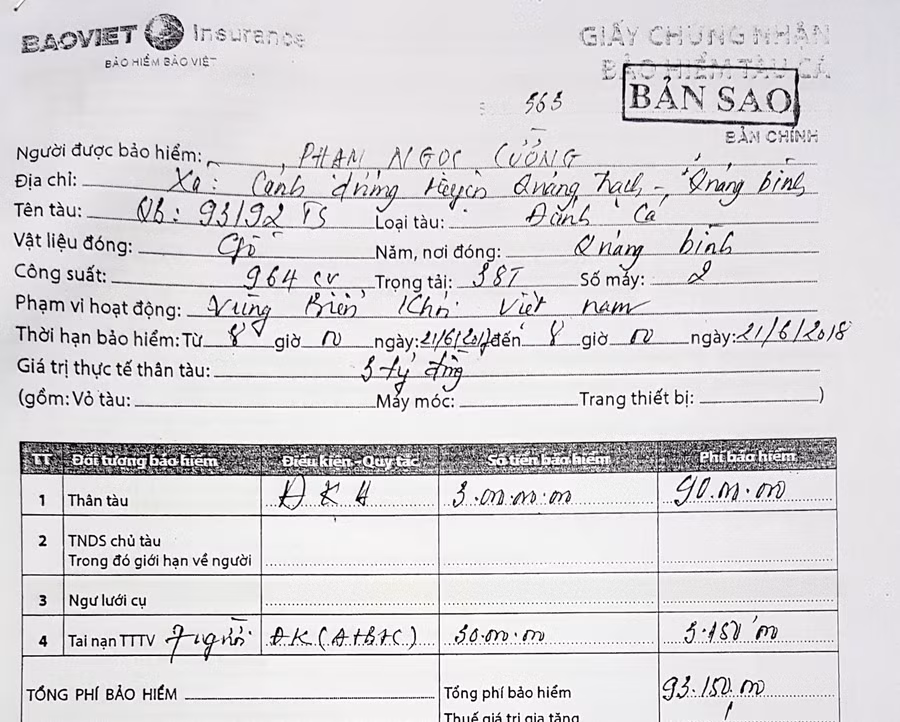 BAOVIET Insurance
BẢO HIỂM BẢO VIỆT
GIẤY CHỨNG NHẬN
BẢO HIỂM TÀU CÁ
BẢN SAO
BẢN CHÍNH
563
Người được bảo hiểm: PHẠM NGỌC CƯỜNG
Địa chỉ: Xã: Cảnh dương Huyện Quảng Trạch - Quảng bình
Tên tàu: Qb: 93192 TS Loại tàu: Đánh Cá
Vật liệu đóng: Gỗ Năm, nơi đóng: Quảng bình
Công suất: 964 cv Trọng tải: 38T Số máy: 2
Phạm vi hoạt động: Vùng Biển Việt nam
Thời hạn bảo hiểm: Từ 8 giờ 00 ngày: 21/6/2017 đến 8 giờ 00 ngày: 21/6/2018
Giá trị thực tế thân tàu: 3 tỷ đồng
(gồm: Vỏ tàu: Máy móc: Trang thiết bị: )
TT Đối tượng bảo hiểm Điều kiện - Quy tắc Số tiền bảo hiểm Phí bảo hiểm
1 Thân tàu ĐKA 3.000.000.000 90.000.000
2 TNDS chủ tàu
Trong đó giới hạn về người
3 Ngư lưới cụ
4 Tai nạn TTTV 7 người ĐK (A+B+C) 30.000.000 3.150.000
TỔNG PHÍ BẢO HIỂM Tổng phí bảo hiểm 93.150.000
Thuế giá trị gia tăng